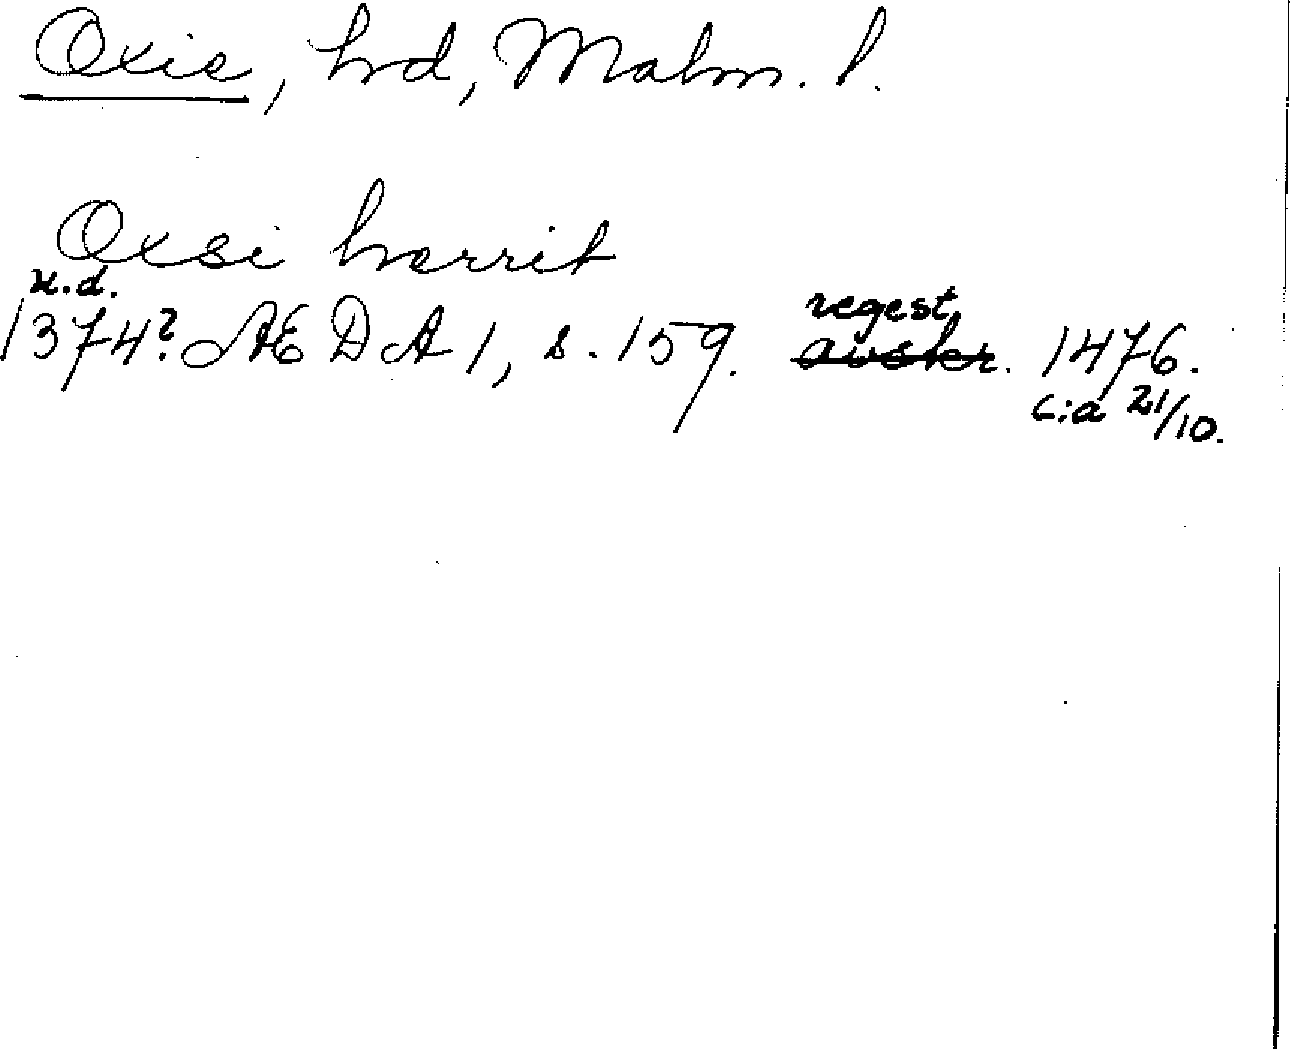 Oxie, hrd, Malm. l.
Oxsi hærrit
u.d.
1374? ÆDA 1, s. 159. regest avskr. 1476.
c:a 21/10.